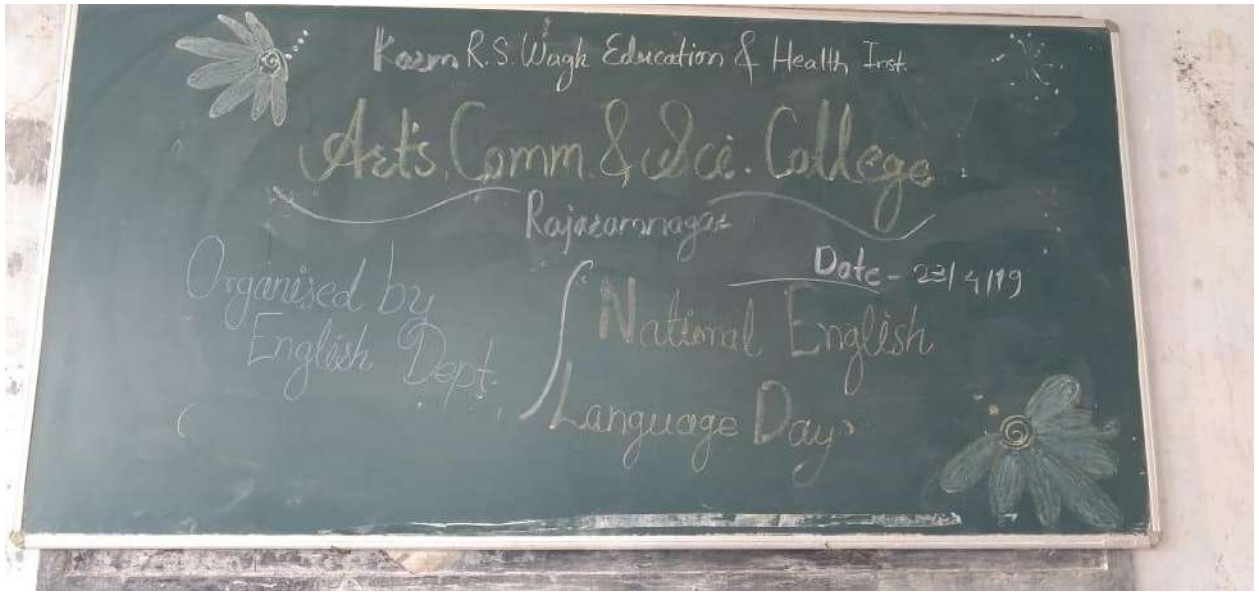 Karm R.S. Wagh Education & Health Inst.
Arts, Comm. & Sci. College
Rajaramnagar
Date - 23/4/19
Organised by
English Dept.
National English
Language Day